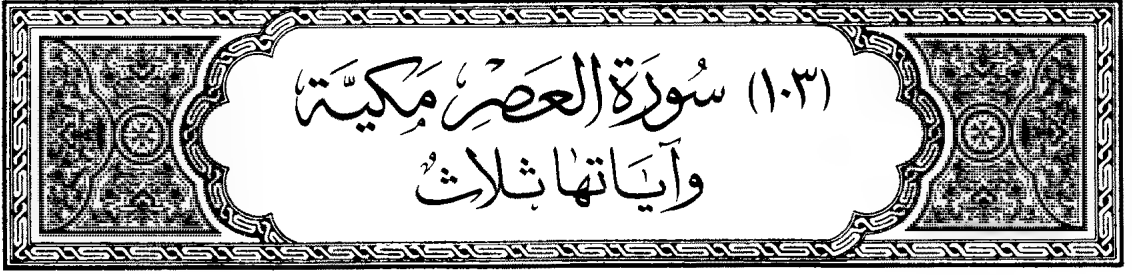 (١٠٣) سُورَةِ العَصْرِ مَكِيَّة
وَآيَاتهَا ثَلاثٌ